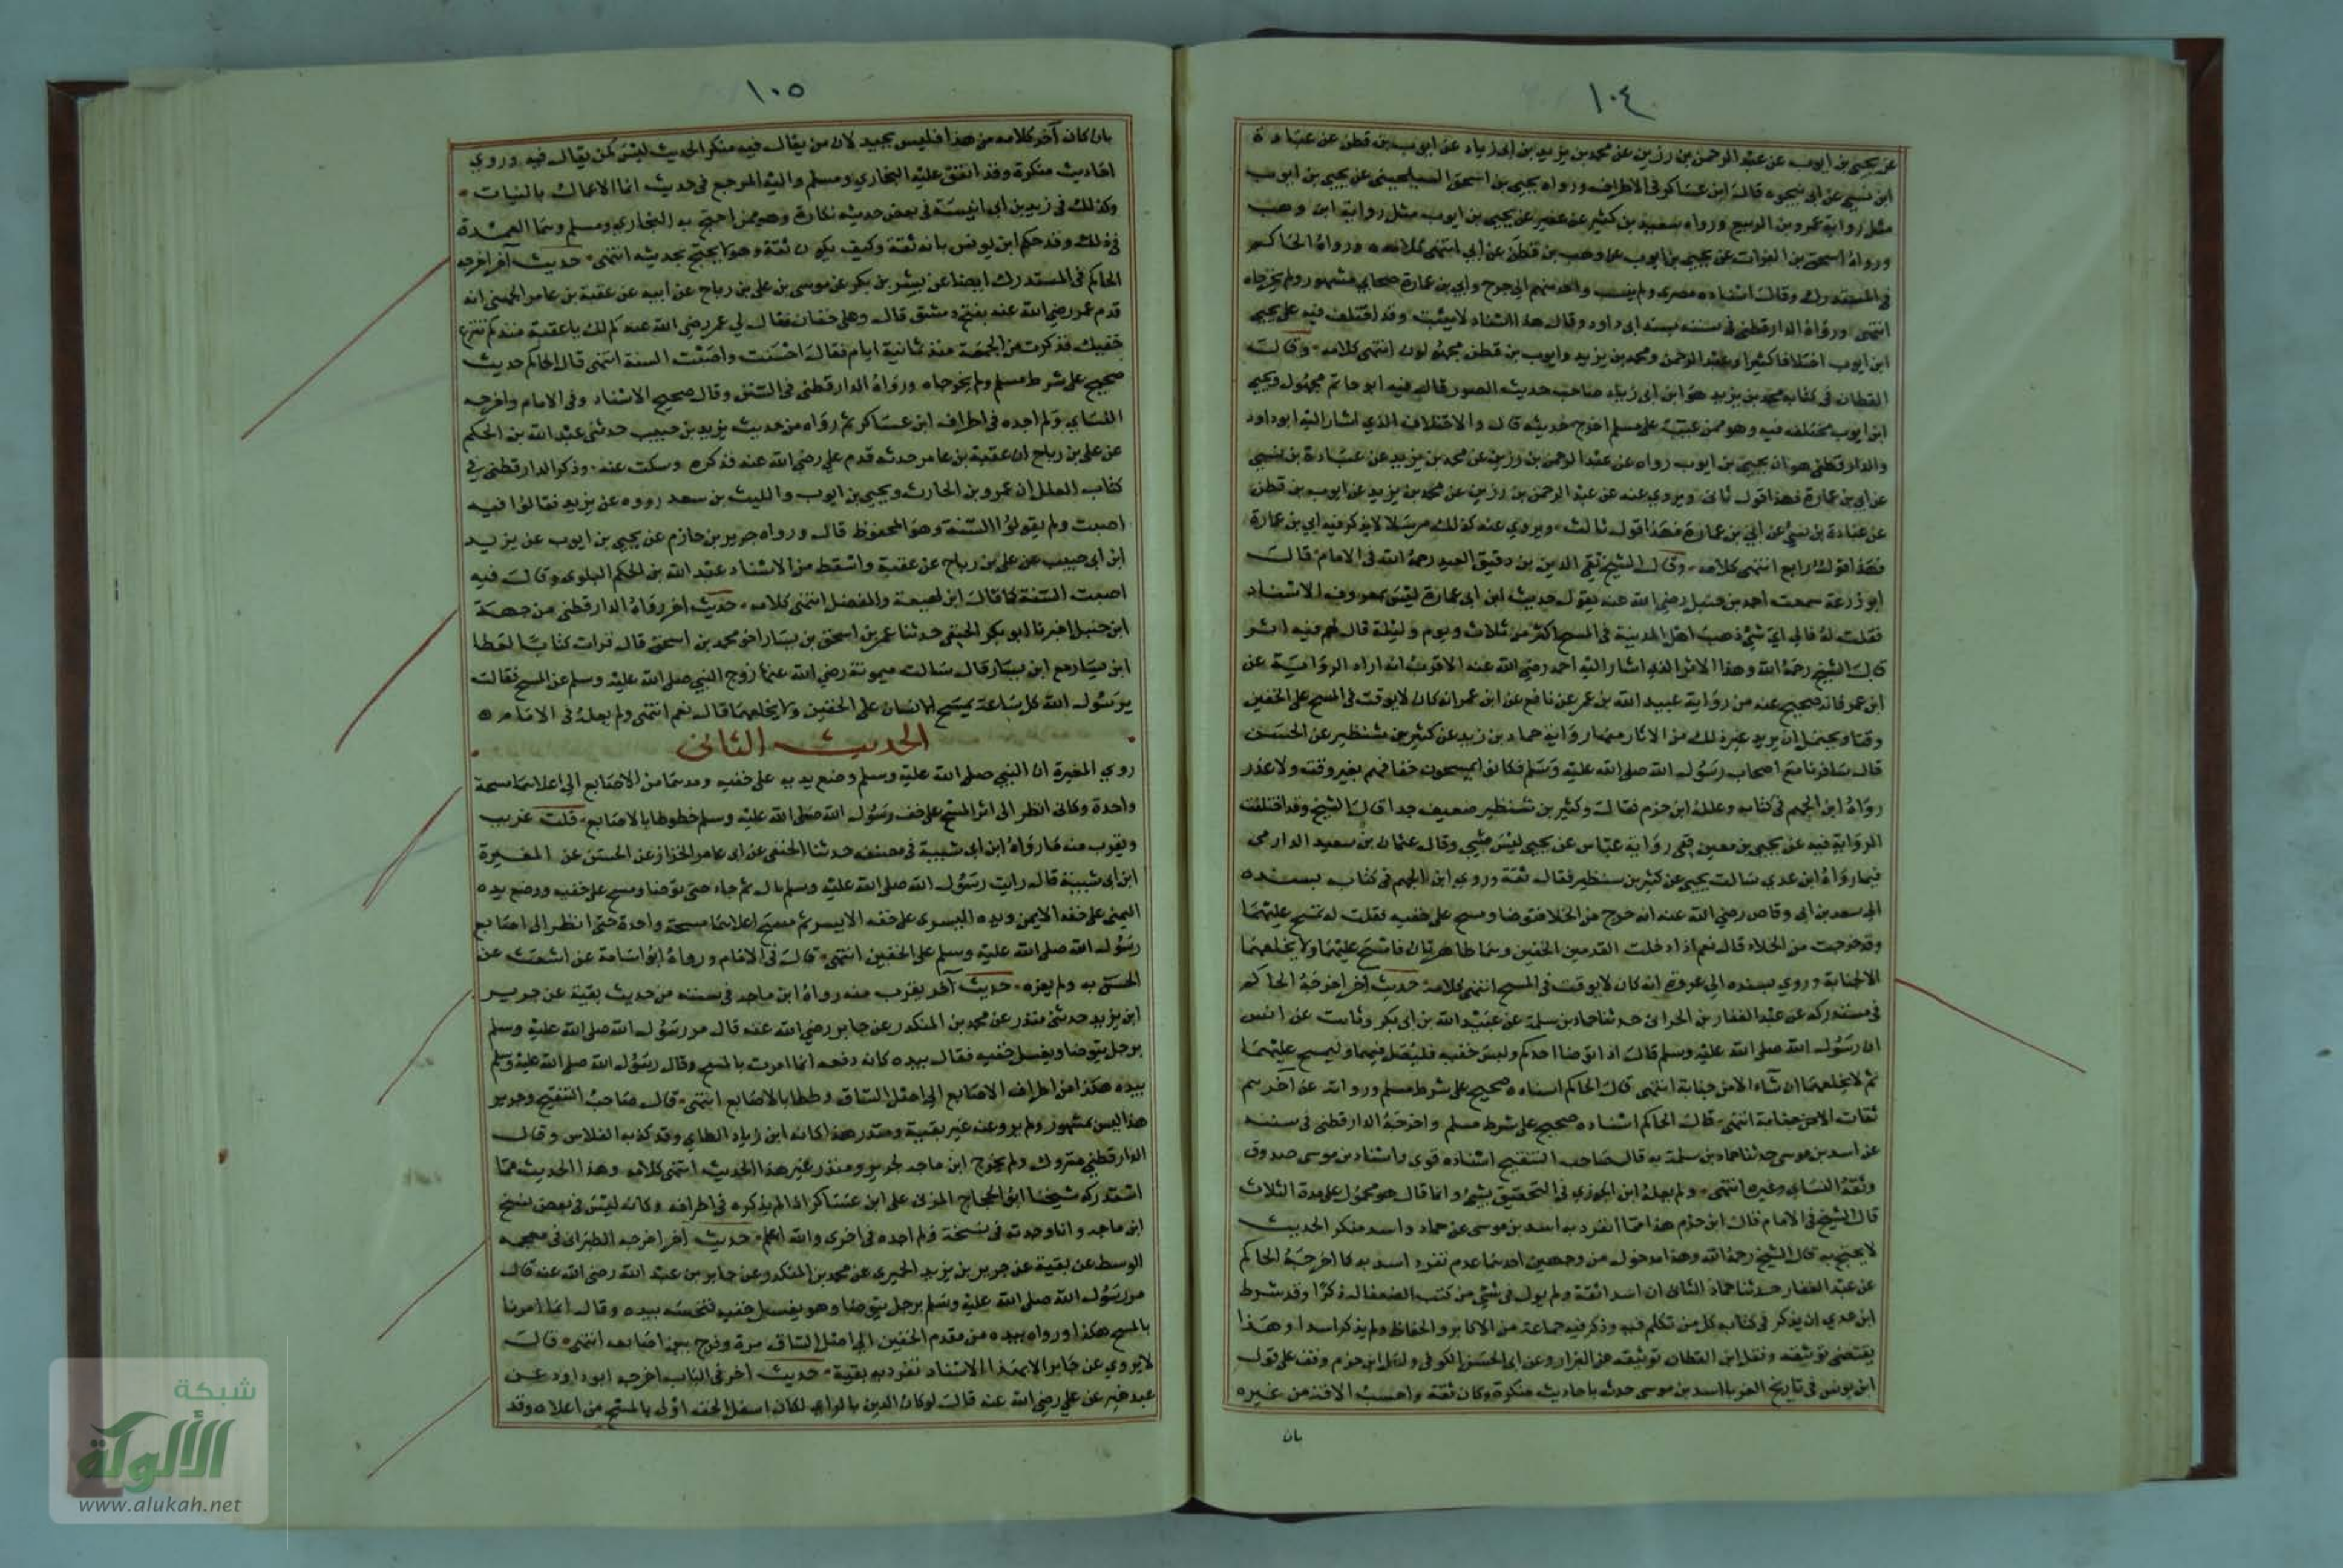 ١٠٤
عن يحيى بن ايوب عن عبد الرحمن بن رزين عن محمد بن يزيد بن ابى زياد عن ايوب بن قطن عن عبادة
ابن نسي عن ابى بنحوه قال ابن عساكر فى الاطراف ورواه يحيى بن اسحق السيلحينى عن يحيى بن ايوب
مثل رواية عمرو بن الربيع ورواه سعيد بن كثير بن عفير عن يحيى بن ايوب مثل رواية ابن وهب
ورواه اسحق بن الفرات عن يحيى بن ايوب عن وهب بن قطن عن أبي انتهى كلامه ورواه الحاكم
في المستدرك وقال اسناده مصرى ولم ينسب واحد منهم الى جرح وأبي بن عمارة صحابي مشهور ولم يخرجاه
انتهى ورواه الدارقطنى فى سننه بسند ابى داود وقال هذا اسناد لا يثبت وقد اختلف فيه على يحيى
ابن ايوب اختلافا كثيرا وعبد الرحمن ومحمد بن يزيد وايوب بن قطن مجهولون انتهى كلامه وقال
القطان فى كتابه محمد بن يزيد هو ابن ابى زياد صاحب حديث الصور قال فيه ابو حاتم مجهول ويحيى
ابن ايوب مختلف فيه وهو ممن عيب على مسلم اخراج حديثه قال والاختلاف الذي اشار اليه ابو داود
والدارقطنى هو ان يحيى بن ايوب رواه عن عبد الرحمن بن رزين عن محمد بن يزيد عن عبادة بن نسي
عن ابي بن عمارة فهذا قول ثانى ويروي عنه عن عبد الرحمن بن رزين عن محمد بن يزيد عن ايوب بن قطن
عن عبادة بن نسي عن ابي بن عمارة فهذا قول ثالث ويروي عنه كذلك مرسلا لا يذكر فيه ابي بن عمارة
فهذا قول رابع انتهى كلامه وقال الشيخ تقي الدين بن دقيق العيد رحمه الله فى الامام قال
ابو زرعة سمعت احمد بن حنبل رضي الله عنه يقول حديث ابن ابى عمارة ليس بمعروف الاسناد
فقلت له فالى اي شئ ذهب اهل المدينة فى المسح اكثر من ثلاث ويوم وليلة قال لهم فيه اثر
قال الشيخ رحمه الله وهذا الاثر الذي اشار اليه احمد رضي الله عنه الاقرب انه اراد الرواية عن
ابن عمر فانه صحيح عنه من رواية عبيد الله بن عمر عن نافع عن ابن عمر انه كان لا يوقت فى المسح على الخفين
وقتا ويحتمل ان يريد غير ذلك من الاثار منها رواية حماد بن زيد عن كثير بن شنظير عن الحسن
قال سافرنا مع اصحاب رسول الله صلى الله عليه وسلم فكانوا يمسحون خفافهم بغير وقت ولا عذر
رواه ابن الجهم فى كتابه وعلله ابن حزم فقال وكثير بن شنظير ضعيف جدا قال الشيخ وقد اختلفت
الرواية فيه عن يحيى بن معين ففى رواية عباس عن يحيى ليس بشيء وقال عثمان بن سعيد الدارمى
فيما رواه ابن عدي سالت يحيى عن كثير بن شنظير فقال ثقة وروي ابن الجهم فى كتاب بسنده
الى سعد بن ابى وقاص رضي الله عنه انه خرج من الخلا فتوضا ومسح على خفيه فقلت له تمسح عليهما
وقد خرجت من الخلاء قال نعم اذا دخلت القدمين الخفين وهما طاهرتان فامسح عليهما ولا يخلعهما
الا لجنابة وروي بسنده الى عروة انه كان لا يوقت فى المسح انتهى كلامه حديث آخر اخرجه الحاكم
فى مستدركه عن عبد الغفار بن الحرانى حدثنا حماد بن سلمة عن عبيد الله بن ابى بكر وثابت عن انس
ان رسول الله صلى الله عليه وسلم قال اذا توضا احدكم ولبس خفيه فليصل فيهما وليمسح عليهما
ثم لا يخلعهما ان شاء الا من جنابة انتهى قال الحاكم اسناده صحيح على شرط مسلم ورواته عن آخرهم
ثقات الا من جنابة انتهى قال الحاكم اسناده صحيح على شرط مسلم واخرجه الدارقطنى فى سننه
عن اسد بن موسى حدثنا حماد بن سلمة به قال صاحب التنقيح اسناده قوى واسد بن موسى صدوق
وثقه النساي وغيره انتهى ولم يعله ابن الجوزي فى التحقيق بشئ وانما قال هو محمول على مدة الثلاث
قال الشيخ فى الامام قال ابن حزم هذا مما انفرد به اسد بن موسى عن حماد واسد منكر الحديث
لا يحتج به قال الشيخ رحمه الله وهذا مدخول من وجهين احدهما عدم تفرد اسد به كما اخرجه الحاكم
عن عبد الغفار حدثنا حماد الثانى ان اسد ثقة ولم ير فى شئ من كتب الضعفا له ذكرا وقد شرط
ابن عدي ان يذكر فى كتابه كل من تكلم فيه وذكر فيه جماعة من الاكابر والحفاظ ولم يذكر اسدا وهذا
يقتضى توثيقه ونقل ابن القطان توثيقه عن البزار وعن ابى الحسن الكوفى ولعل ابن حزم وقف على قول
ابن يونس فى تاريخ الغربا اسد بن موسى حدث باحاديث منكرة وكان ثقة واحسب الافة من غيره
بان
١٠٥
بان كان آخر كلامه من هذا فليس بجيد لان من يقال فيه منكر الحديث ليس كمن يقال فيه وروي
احاديث منكرة وقد اتفق عليه البخاري ومسلم واليه المرجع فى حديث انما الاعمال بالنيات
وكذلك فى زيد بن ابى انيسة فى بعض حديثه نكارة وهو ممن احتج به البخاري ومسلم وهما العمدة
فى ذلك وقد حكم ابن يونس بانه ثقة وكيف يكون ثقة وهو لا يحتج بحديثه انتهى حديث آخر اخرجه
الحاكم فى المستدرك ايضا عن بشر بن بكر عن موسى بن على بن رباح عن ابيه عن عقبة بن عامر الجهنى انه
قدم عمر رضي الله عنه بفتح دمشق قال وعلى خفان فقال لي عمر رضي الله عنه كم لك يا عقبة منذ كم تنزع
خفيك فذكرت من الجمعة منذ ثمانية ايام فقال احسنت واصبت السنة انتهى قال الحاكم حديث
صحيح على شرط مسلم ولم يخرجاه ورواه الدارقطنى فى السنن وقال صحيح الاسناد وفى الامام واخرجه
النساي ولم اجده فى اطراف ابن عساكر ثم رواه من حديث يزيد بن حبيب حدثنى عبد الله بن الحكم
عن على بن رباح ان عقبة بن عامر حدثه قدم علي رضي الله عنه فذكره وسكت عنه وذكر الدارقطنى في
كتاب العلل ان عمرو بن الحارث ويحيى بن ايوب والليث بن سعد رووه عن يزيد فقالوا فيه
اصبت ولم يقولوا السنة وهو المحفوظ قال ورواه جرير بن حازم عن يحيى بن ايوب عن يزيد
ابن ابى حبيب عن على بن رباح عن عقبة واسقط من الاسناد عبد الله بن الحكم البلوى وقال فيه
اصبت السنة كما قال ابن لهيعة والمفضل انتهى كلامه حديث آخر رواه الدارقطنى من جهة
ابن حنبل اخبرنا ابو بكر الحنفى حدثنا عمر بن اسحق بن يسار اخو محمد بن اسحق قال قرات كتابا لعطا
ابن يسار مع ابن يسار قال سالت ميمونة رضي الله عنها زوج النبي صلى الله عليه وسلم عن المسح فقالت
يرسول الله كل ساعة يمسح الانسان على الخفين ولا يخلعهما قال نعم انتهى ولم يعله فى الامام
الحديث الثانى
روي المغيرة ان النبي صلى الله عليه وسلم وضع يديه على خفيه ومدهما من الاصابع الى اعلاهما مسحة
واحدة وكانى انظر الى اثر المسح على خف رسول الله صلى الله عليه وسلم خطوطا بالاصابع قلت غريب
ويقرب منه مارواه ابن ابى شيبة فى مصنفه حدثنا الحنفى عن ابى عامر الخزاز عن الحسن عن المغيرة
ابن ابى شيبة قال رايت رسول الله صلى الله عليه وسلم بال ثم جاء حتى توضا ومسح على خفيه ووضع يده
اليمنى على خفه الايمن ويده اليسرى على خفه الايسر ثم مسح اعلاهما مسحة واحدة حتى انظر الى اصابع
رسول الله صلى الله عليه وسلم على الخفين انتهى قال فى الامام ورواه ابو اسامة عن اشعث عن
الحسن به ولم يعزه حديث آخر يقرب منه رواه ابن ماجه فى سننه من حديث بقية عن جرير
ابن يزيد حدثنى منذر عن محمد بن المنكدر عن جابر رضي الله عنه قال مر رسول الله صلى الله عليه وسلم
برجل يتوضا ويغسل خفيه فقال بيده كانه دفعه انما امرت بالمسح وقال رسول الله صلى الله عليه وسلم
بيده هكذا من اطراف الاصابع الى اصل الساق وخططا بالاصابع انتهى قال صاحب التنقيح وجرير
هذا ليس بمشهور ولم يرو عنه غير بقية ومنذر هذا كانه ابن زياد الطاي وقد كذبه الفلاس وقال
الدارقطنى متروك ولم يخرج ابن ماجه لجرير ومنذر غير هذا الحديث انتهى كلامه وهذا الحديث مما
استدركه شيخنا ابو الحجاج المزى على ابن عساكر اذ لم يذكره فى اطرافه وكانه ليس فى بعض نسخ
ابن ماجه وانا وجدته فى نسخة ولم اجده فى اخرى والله اعلم حديث آخر اخرجه الطبرانى فى معجمه
الوسط عن بقية عن جرير بن يزيد الحيرى عن محمد بن المنكدر عن جابر بن عبد الله رضي الله عنه قال
مر رسول الله صلى الله عليه وسلم برجل يتوضا وهو يغسل خفيه فنخسه بيده وقال انما امرنا
بالمسح هكذا ورواه بيده من مقدم الخفين الى اصل الساق مرة وفرج بين اصابعه انتهى قال
لا يروي عن جابر الا بهذا الاسناد تفرد به بقية حديث آخر فى الباب اخرجه ابو داود عن
عبد خير عن علي رضي الله عنه قال لو كان الدين بالراي لكان اسفل الخف اولى بالمسح من اعلاه وقد
شبكة
الألوكة
www.alukah.net